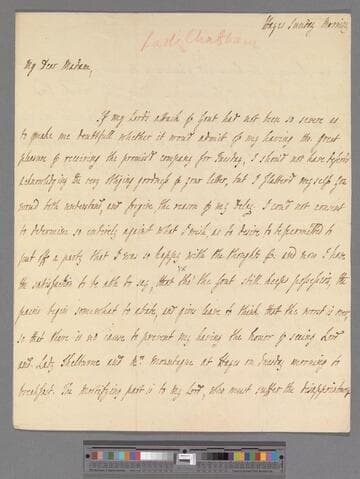 Hayes Sunday Morning
Lady Chatham
My Dear Madam,
If my Lords attack of Gout had not been so severe as
to make me doubtfull whether it wou'd admit of my having the great
pleasure of receiving the promis'd company for Tuesday, I shou'd not have defer'd
acknowledging the very obliging goodness of your letter, but I flatter'd myself you
wou'd both understand, and forgive the reason of my delay. I cou'd not consent
to determine so entirely against what I wish, as to desire to be permitted to
put off a party that I was so happy with the thoughts of: and now I have
the satisfaction to be able to say, that tho' the Gout still keeps possession, the
pains begin somewhat to abate, and give leave to think that the worst is over,
so that there is no cause to prevent my having the honor of seeing Lord
and Lady Shelburne and Mrs. Montague at Hayes on Tuesday morning to
breakfast. The mortifying part is to my Lord, who must suffer the disappointment